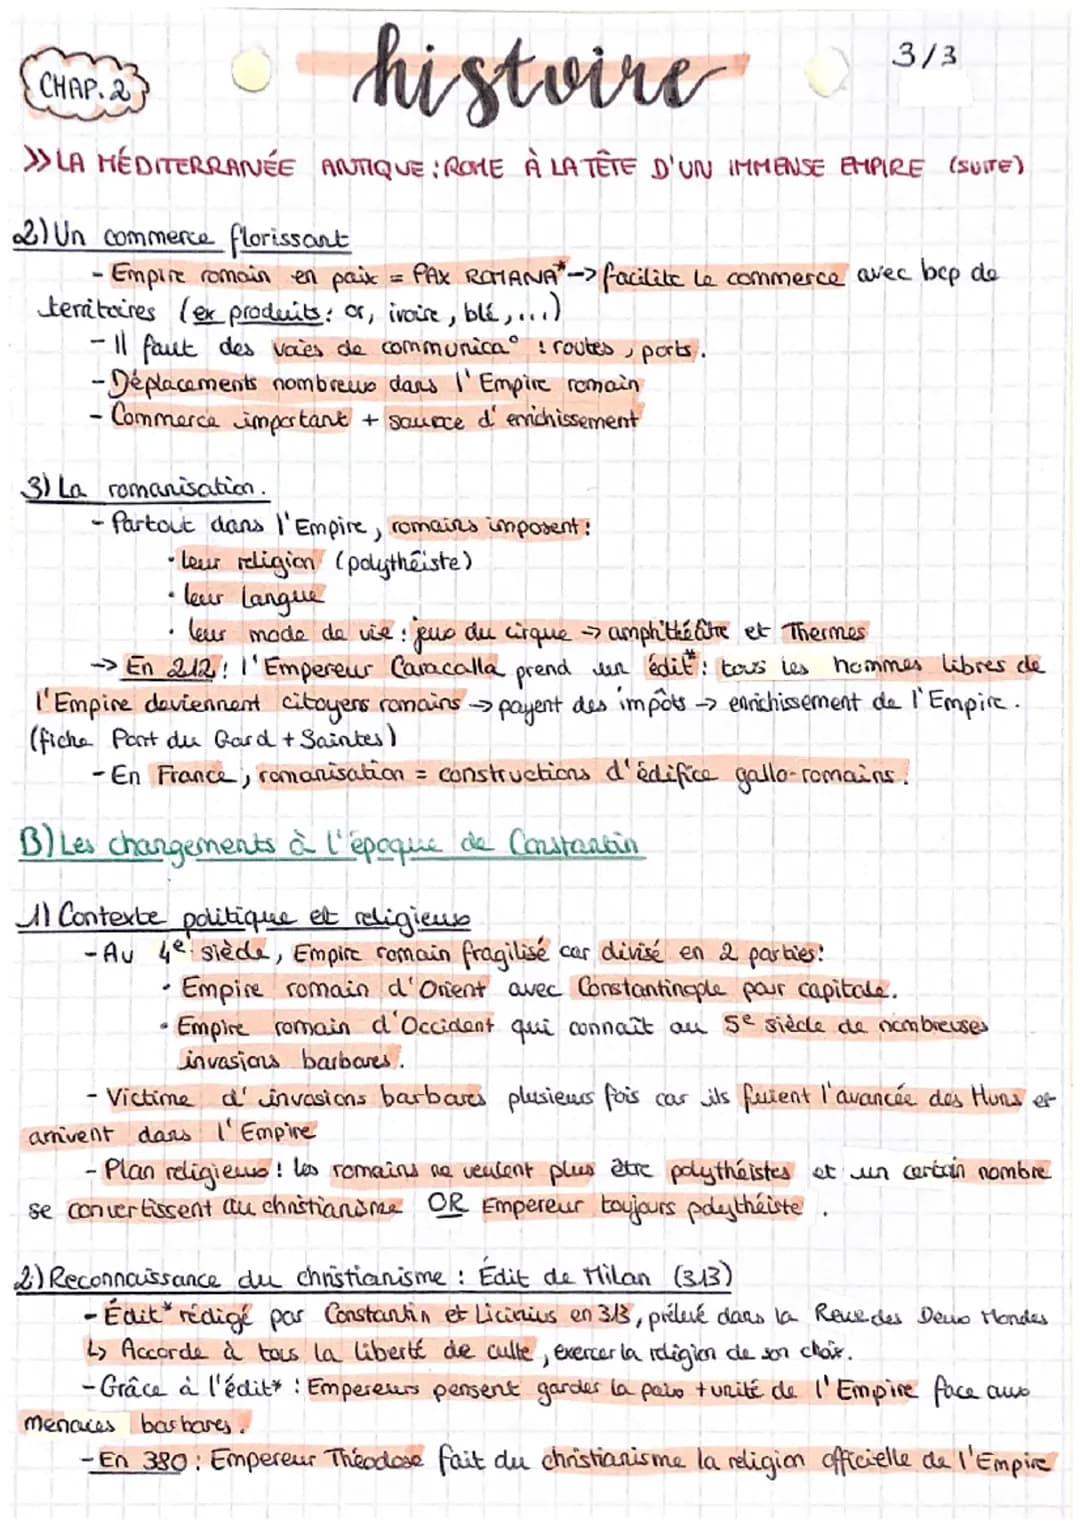 CHAP. 2
histoire
3/3
>> LA MÉDITERRANÉE ANTIQUE : ROME À LA TÊTE D'UN IMMENSE EMPIRE (SUITE)
2) Un commerce florissant
- Empire romain en paix = PAX ROMANA* -> facilite le commerce avec bcp de
territoires (ex produits : or, ivoire, blé, ...)
- Il faut des voies de communica° : routes, ports.
- Déplacements nombreux dans l'Empire romain
- Commerce important + source d'enrichissement
3) La romanisation.
- Partout dans l'Empire, romains imposent :
• leur religion (polythéiste)
• leur langue
• leur mode de vie : jeux du cirque -> amphithéâtre et Thermes
-> En 212 : l'Empereur Caracalla prend un édit* : tous les hommes libres de
l'Empire deviennent citoyens romains -> payent des impôts -> enrichissement de l'Empire.
(fiche Pont du Gard + Saintes)
- En France, romanisation = constructions d'édifice gallo-romains.
B) Les changements à l'époque de Constantin
1) Contexte politique et religieux
- Au 4e siècle, Empire romain fragilisé car divisé en 2 parties :
• Empire romain d'Orient avec Constantinople pour capitale.
• Empire romain d'Occident qui connaît au 5e siècle de nombreuses
invasions barbares.
- Victime d'invasions barbares plusieurs fois car ils fuient l'avancée des Huns et
arrivent dans l'Empire
- Plan religieux : les romains ne veulent plus être polythéistes et un certain nombre
se convertissent au christianisme OR Empereur toujours polythéiste.
2) Reconnaissance du christianisme : Édit de Milan (313)
- Édit* rédigé par Constantin et Licinius en 313, prélevé dans la Revue des Deux Mondes
↳ Accorde à tous la liberté de culte, exercer la religion de son choix.
- Grâce à l'édit* : Empereurs pensent garder la paix + unité de l'Empire face aux
menaces barbares.
- En 380 : Empereur Théodose fait du christianisme la religion officielle de l'Empire